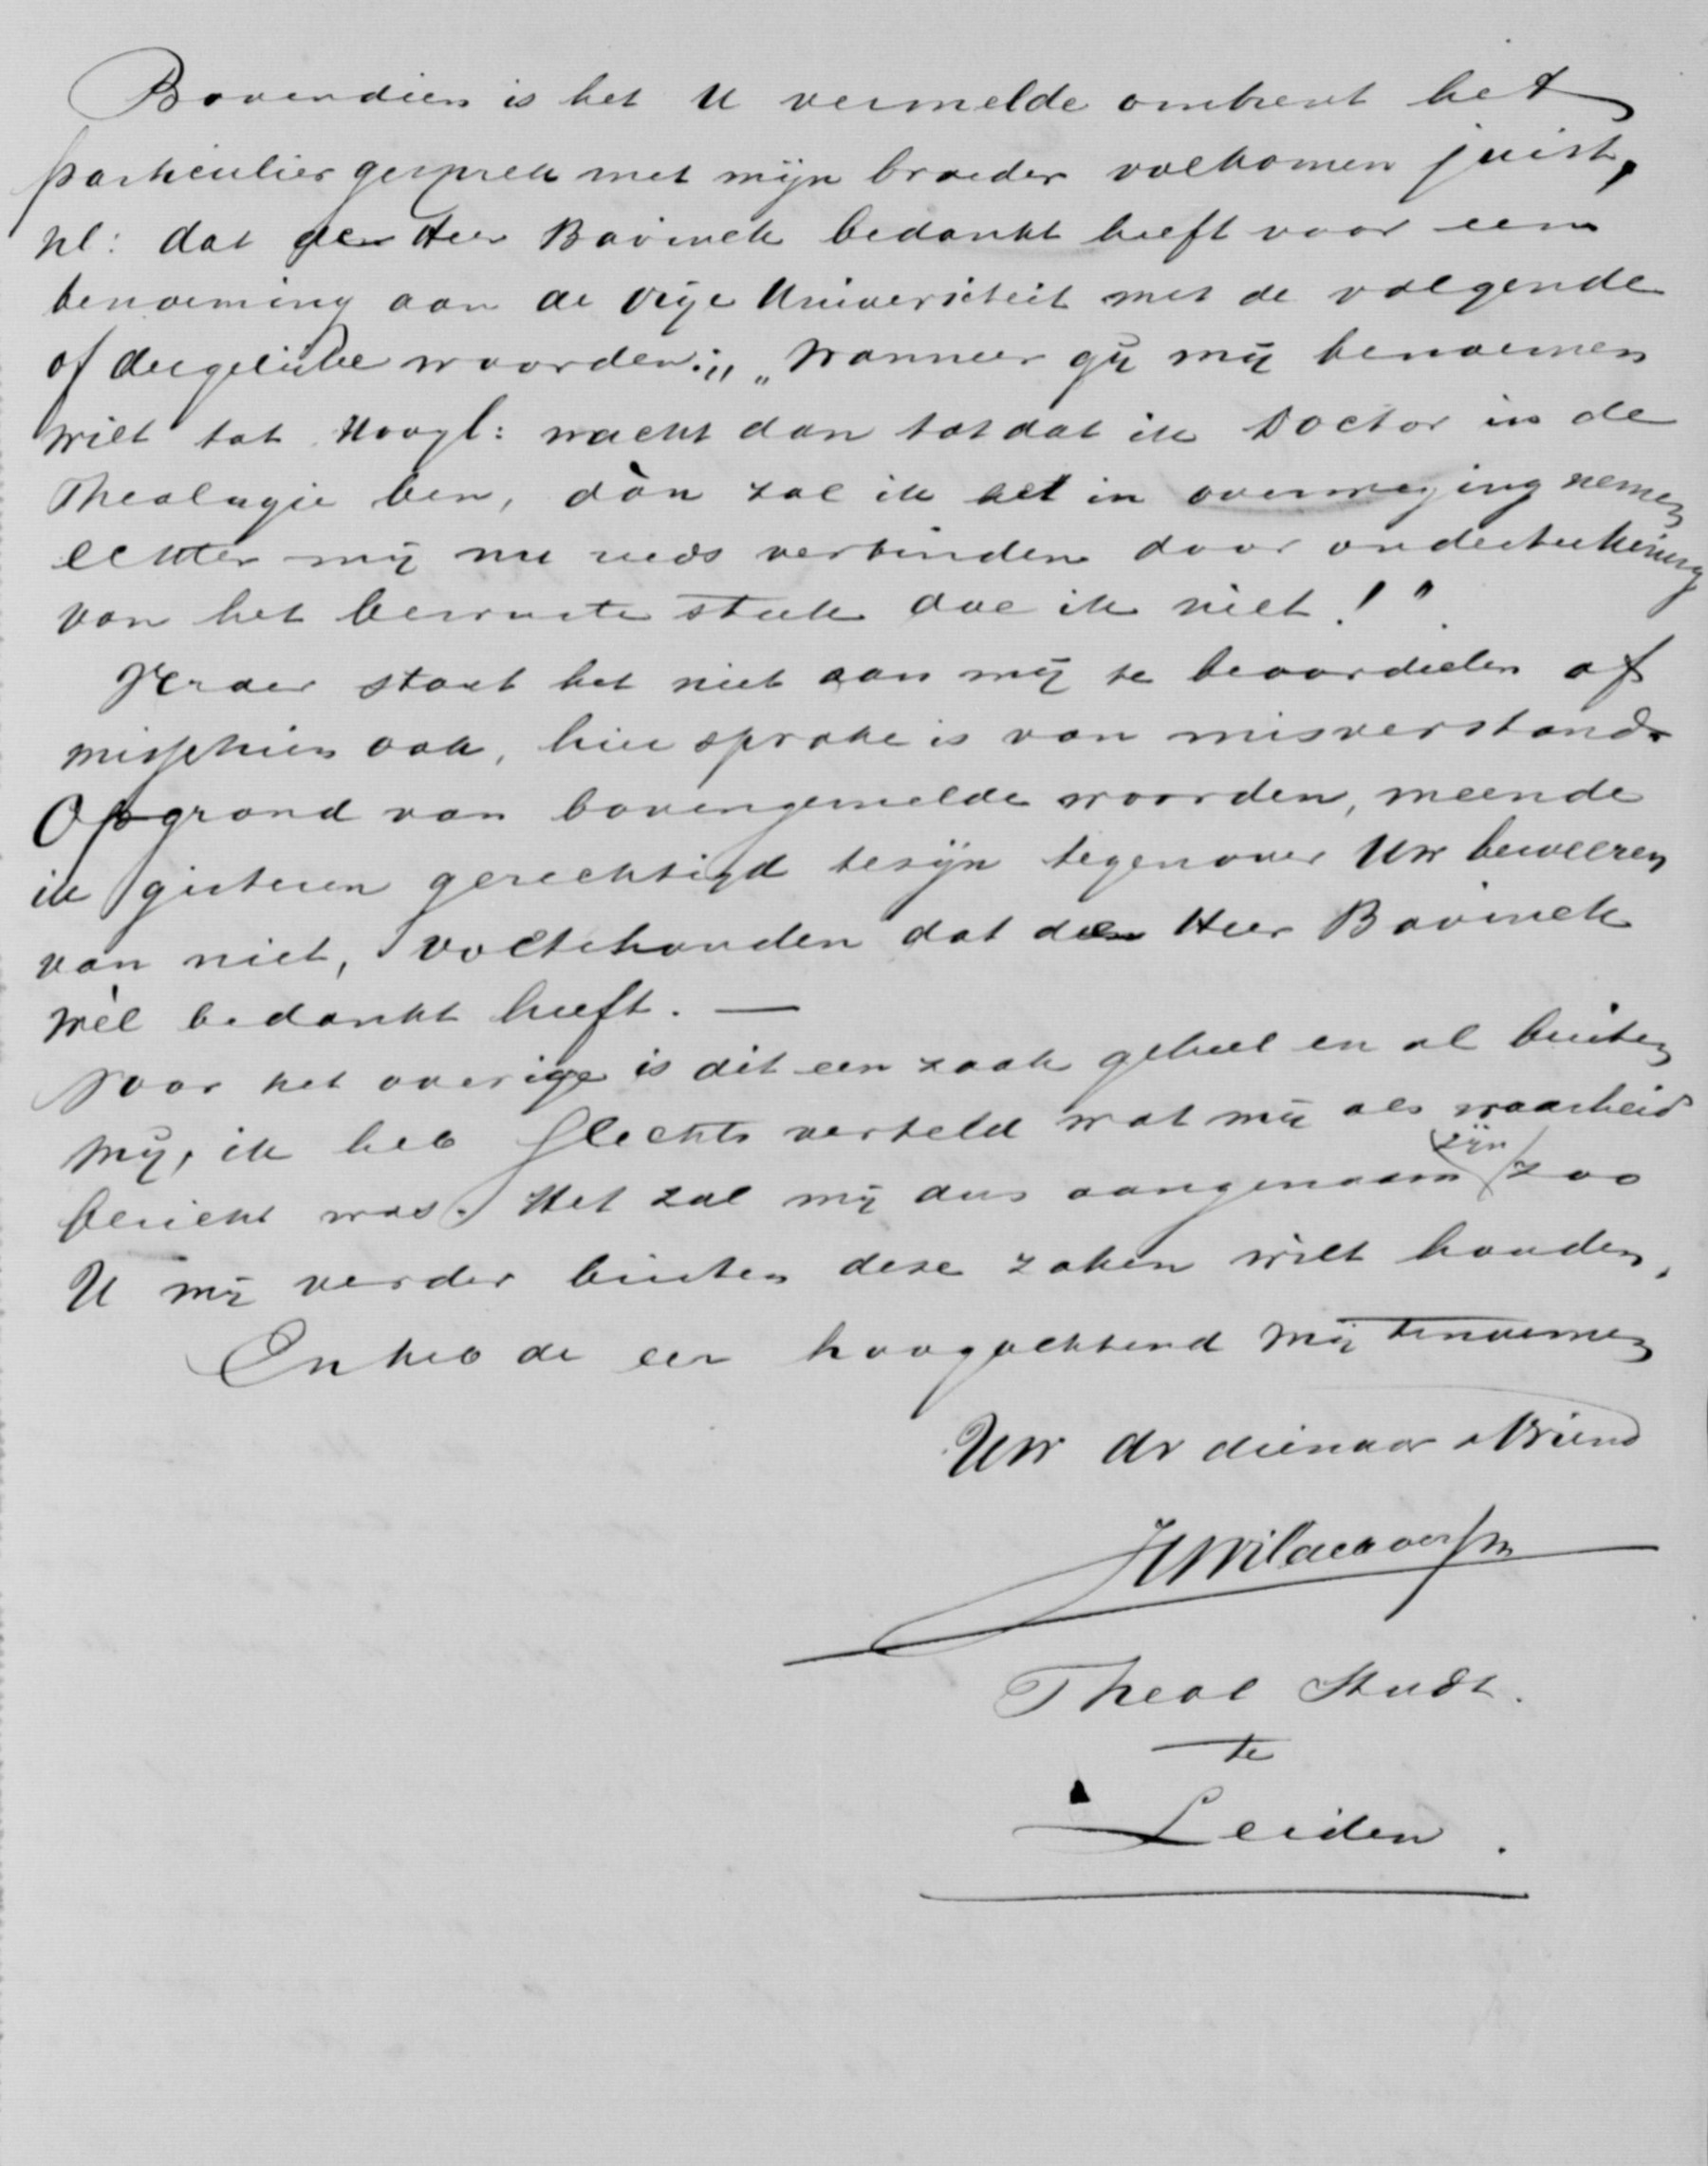 Bovendien is het U vermelde omtrent het
particulier gesprek met mijn broeder volkomen juist,
nl: dat den Heer Bavinck bedankt heeft voor een
benoeming aan de Vrije Universiteit met de volgende
of dergelijke woorden: „Wanneer gij mij benoemen
wilt tot Hoogl: wacht dan totdat ik Doctor in de
Theologie ben, dàn zal ik het in overweging nemen
echter mij nu reeds verbinden door onderteekening
van het bewuste stuk doe ik niet!"
Verder staat het niet aan mij te beoordeelen of
misschien ook, hier sprake is van misverstand.
Op grond van bovengemelde woorden, meende
ik gisteren gerechtigd te zijn tegenover Uw beweeren
van niet, vol te houden dat den Heer Bavinck
wèl bedankt heeft. —
Voor het overige is dit een zaak geheel en al buiten
mij, ik heb slechts verteld wat mij als waarheid
bericht was. Het zal mij dus aangenaam zijn zoo
U mij verder buiten deze zaken wilt houden.
En heb de eer hoogachtend mij te noemen
Uw dv dienaar & Vriend
Theol Studt.
te
Leiden.